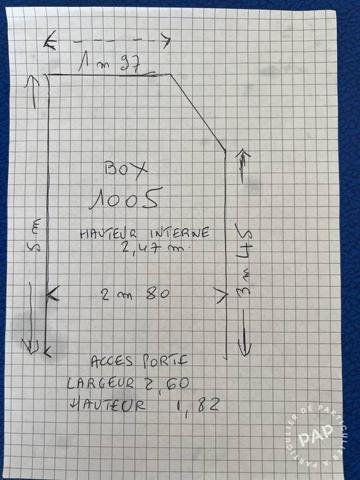 1 m 97
BOX
1005
HAUTEUR INTERNE
2,47 m.
5 m
3 m 45
2 m 80
ACCES PORTE
LARGEUR 2,60
HAUTEUR 1,82
DE PARTICULIER À PARTICULIER
PAP